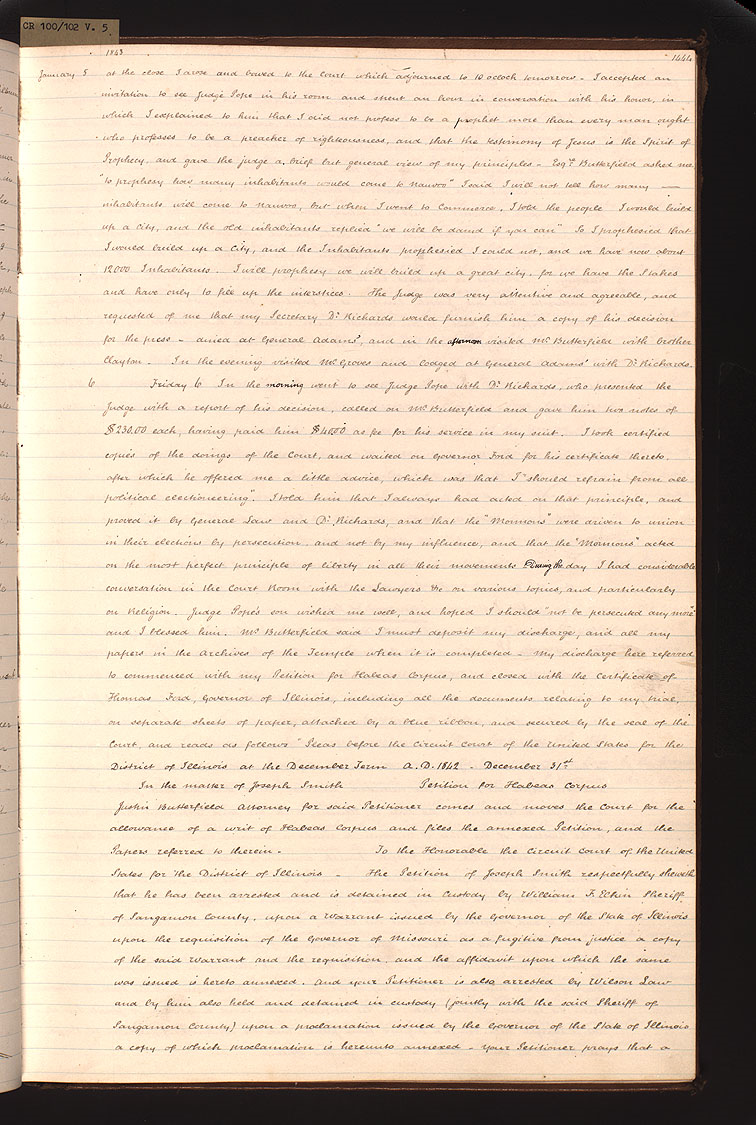 CR 100/102 V. 5
1843
1444
January 5 at the close I arose and bowed to the Court which adjourned to 10 oclock tomorrow – I accepted an
invitation to see Judge Pope in his room and spent an hour in conversation with his honor, in
which I explained to him that I did not profess to be a prophet more than every man ought
who professes to be a preacher of righteousness, and that the testimony of Jesus is the Spirit of
Prophecy, and gave the judge a brief but general view of my principles – Esqre. Butterfield asked me
"to prophesy how many inhabitants would come to nauvoo" I said I will not tell how many —
inhabitants will come to nauvoo, but when I went to Commerce, I told the people I would build
up a city, and the old inhabitants replied "we will be damd if you can" So I prophesied that
I would build up a City, and the Inhabitants prophesied I could not, and we have now about
12000 Inhabitants. I will prophesy we will build up a great city, for we have the Stakes
and have only to fill up the interstices. The Judge was very attentive and agreeable, and
requested of me that my Secretary Dr. Richards would furnish him a copy of his decision
for the press – dined at General Adams', and in the afternoon visited Mr. Butterfield with brother
Clayton. In the evening visited Mr. Groves and lodged at General Adams' with Dr. Richards.
6 Friday 6 In the morning went to see Judge Pope with Dr. Richards, who presented the
Judge with a report of his decision, called on Mr. Butterfield and gave him two notes of
$230.00 each, having paid him $40.00 as fee for his service in my suit. I took certified
copies of the doings of the Court, and waited on Governor Ford for his certificate thereto,
after which he offered me a little advice, which was that I "should refrain from all
political electioneering". I told him that I always had acted on that principle, and
proved it by General Law and Dr. Richards, and that the "Mormons" were driven to union
in their elections by persecution, and not by my influence, and that the "Mormons" acted
on the most perfect principle of liberty in all their movements During the day I had considerable
conversation in the Court Room with the Lawyers &c on various topics, and particularly
on Religion. Judge Pope's son wished me well, and hoped I should "not be persecuted any more"
and I blessed him. Mr. Butterfield said I must deposit my discharge, and all my
papers in the archives of the Temple when it is completed – My discharge here referred
to commenced with my Petition for Habeas Corpus, and closed with the Certificate of
Thomas Ford, Governor of Illinois, including all the documents relating to my trial,
on separate sheets of paper, attached by a blue ribbon, and secured by the seal of the
Court, and reads as follows "Pleas before the Circuit Court of the United States for the
District of Illinois at the December Term A.D. 1842 – December 31st
In the matter of Joseph Smith Petition for Habeas Corpus
Justin Butterfield Attorney for said Petitioner comes and moves the Court for the
allowance of a writ of Habeas Corpus and files the annexed Petition, and the
Papers referred to therein – To the Honorable the Circuit Court of the United
States for the District of Illinois – The Petition of Joseph Smith respectfully sheweth
that he has been arrested and is detained in Custody by William F. Elkin Sheriff
of Sangamon County, upon a Warrant issued by the Governor of the State of Illinois
upon the requisition of the Governor of Missouri as a fugitive from justice a copy
of the said Warrant and the requisition, and the affidavit upon which the same
was issued is hereto annexed. And your Petitioner is also arrested by Wilson Law
and by him also held and detained in custody (jointly with the said Sheriff of
Sangamon County) upon a proclamation issued by the Governor of the State of Illinois
a copy of which proclamation is hereunto annexed – Your Petitioner prays that a